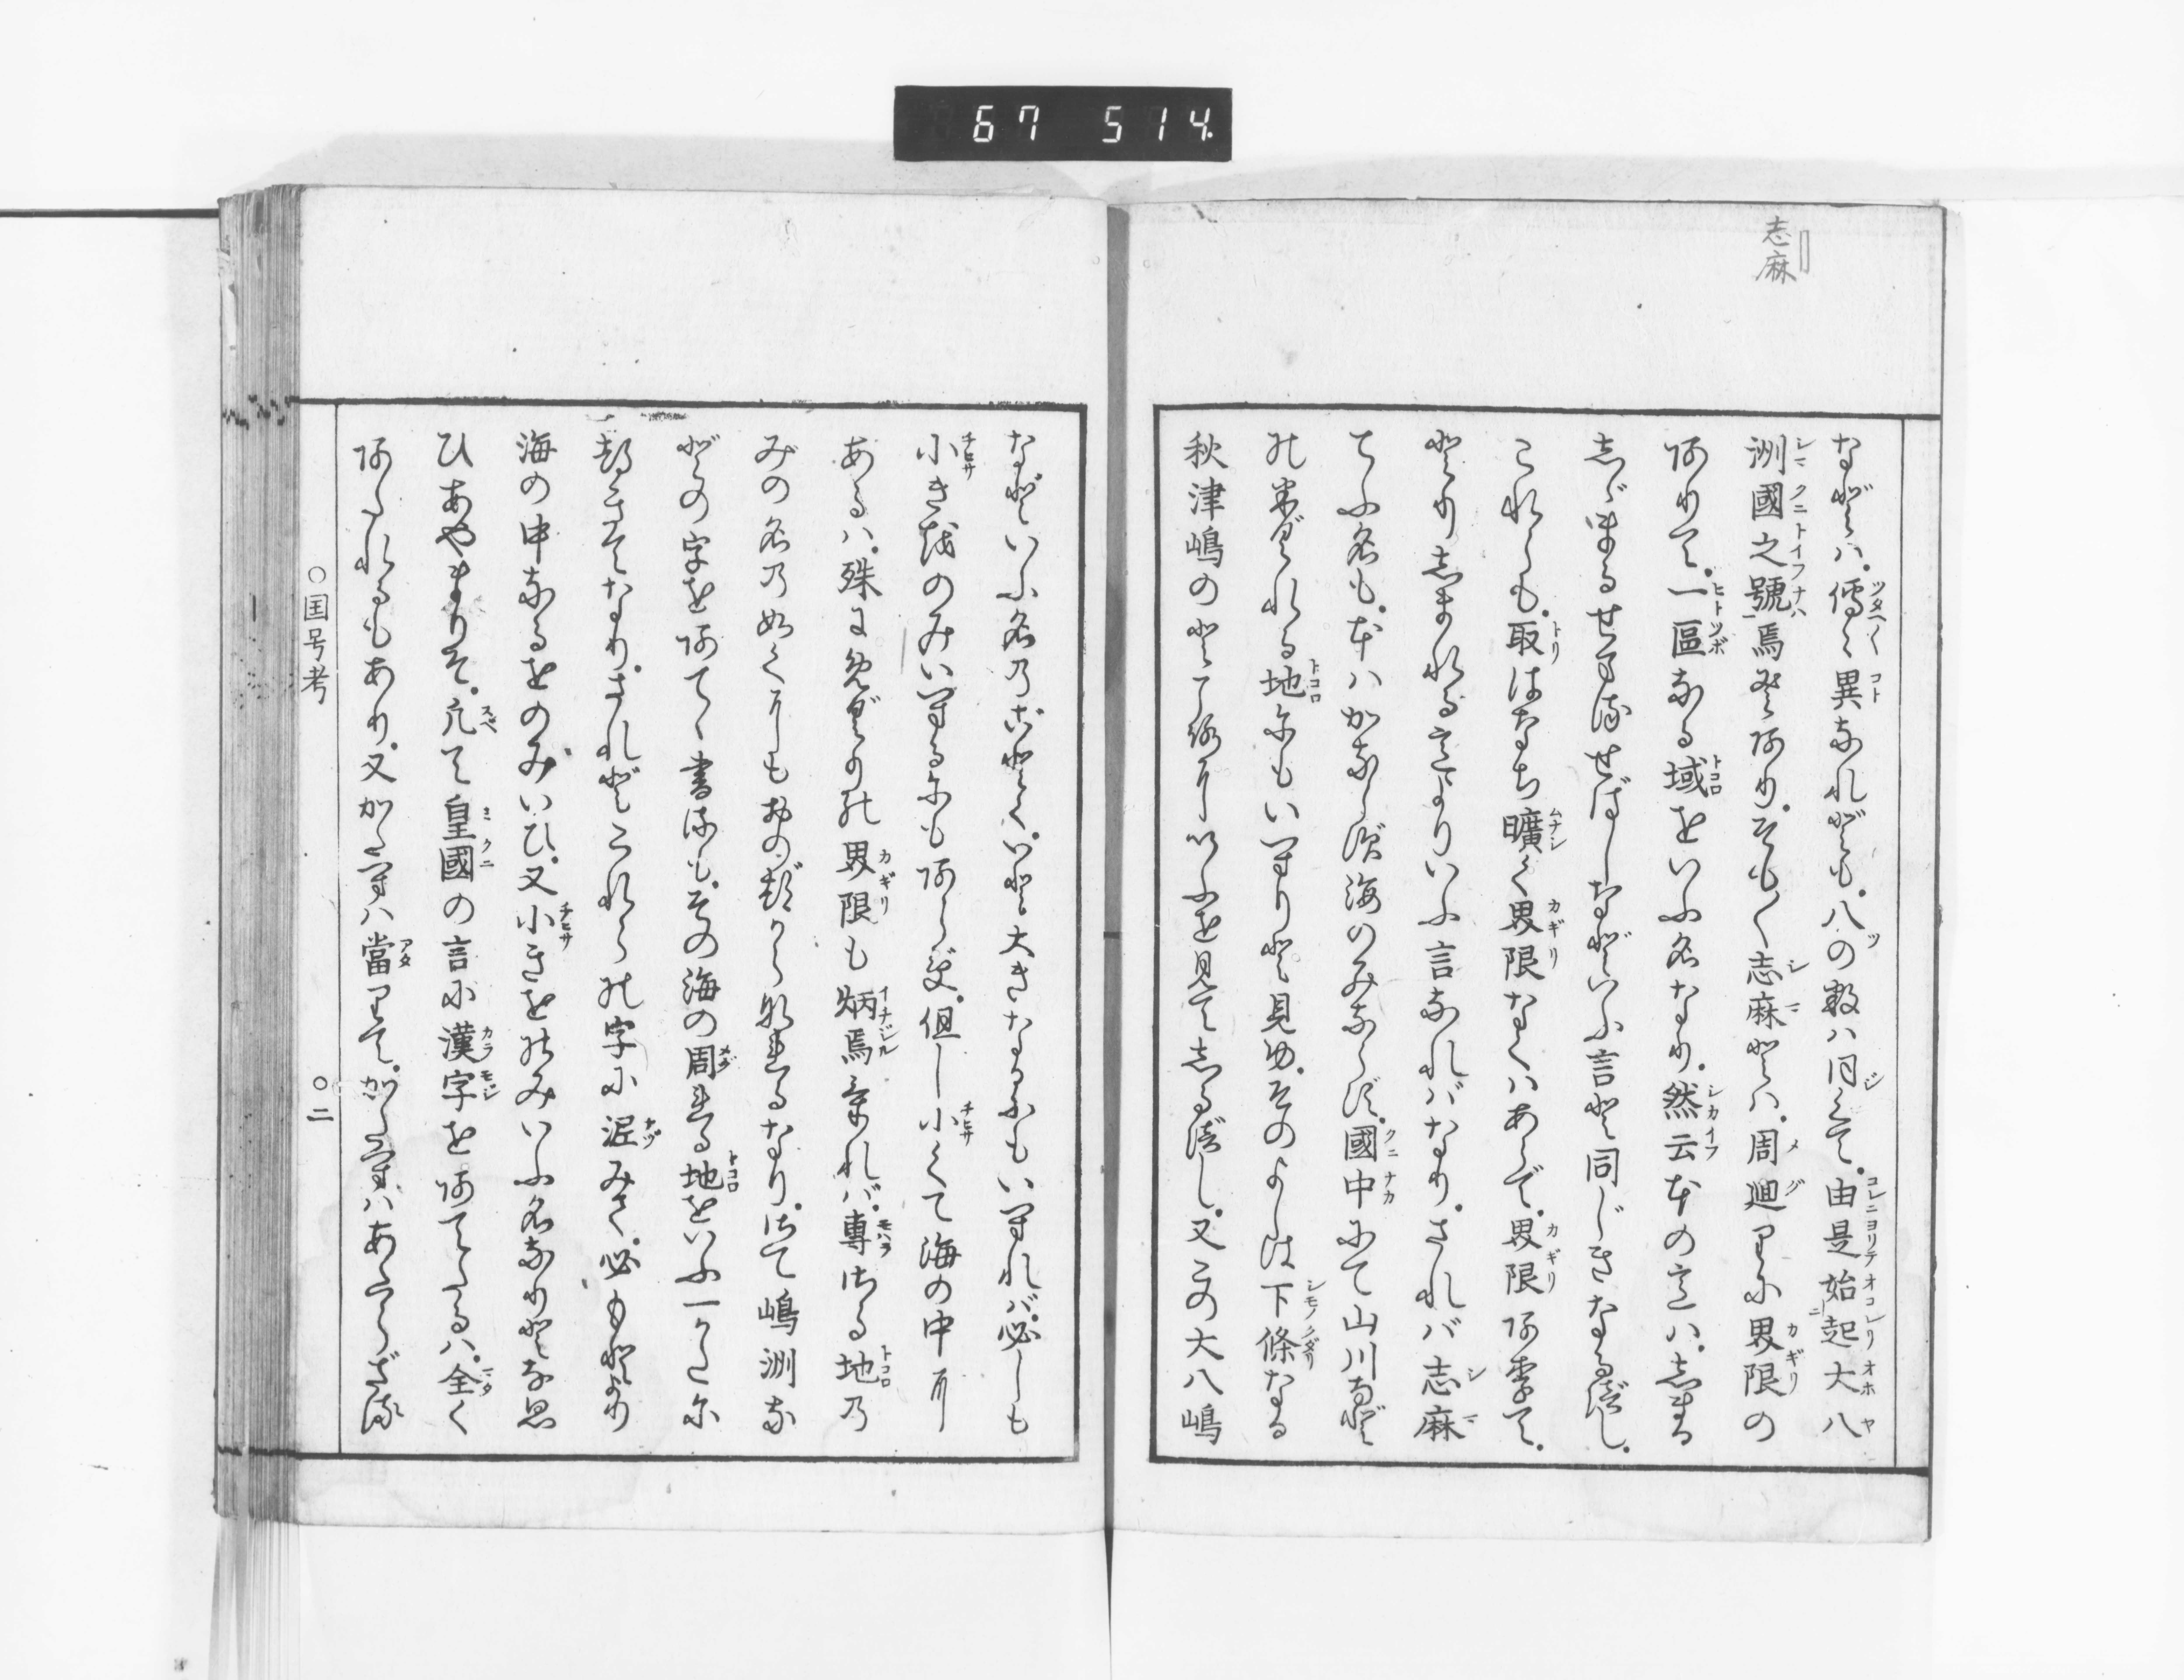 67 514.
志麻
などは。傳〻異なれども。八の数は同くて。由是始起大八
洲國之號焉とあり。そも〳〵志麻とは。周廻りに界限の
ありて。一區なる域をいふ名なり。然云本の意は。しまる
しゞまるせまるせばしなどいふ言と同じきなるべし。
これらも。取はなち曠く界限なくはあらで。界限ありて。
とりしまれる意よりいふ言なればなり。されば志麻
てふ名も。本はかならず海のみならず。國中にて山川など
のめぐれる地にもいへりと見ゆ。そのよしは下條なる
秋津嶋のところにいふを見てしるべし。又この大八嶋
などいふ名のごとく。いと大きなるにもいへれば。必しも
小きをのみいへるにもあらず。但し小くて海の中に
あるは。殊にめぐりの界限も炳焉ければ。專さる地の
みの名の如くにもおのづからなれるなり。さて嶋洲な
どの字をあてゝ書るも。その海の周れる地をいふ一かたに
つきてなり。されどこれらの字に泥みて。必もとより
海の中なるをのみいひ。又小きをのみいふ名なりとな思
ひあやまりそ。凡て皇國の言に漢字をあてたるは。全く
あたれるもあり。又かたへは當りて。かたへはあたらざる
○国号考 ○二